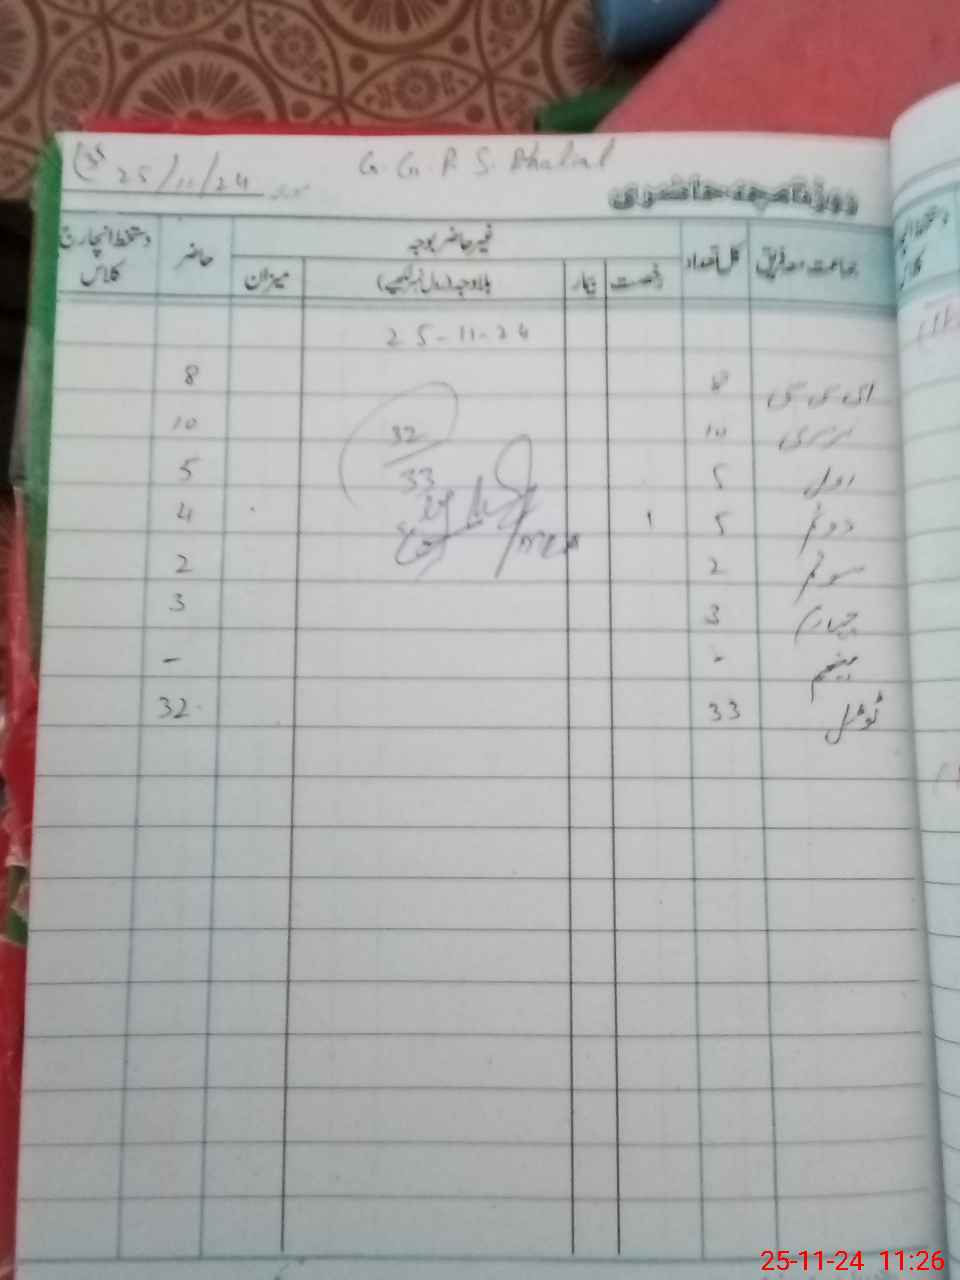 25/11/24
G. G. P. S. Dhalial
روزنامچہ حاضری
جماعت معہ فریق کل تعداد غیر حاضر بوجہ حاضر دستخط انچارج کلاس
رخصت بیمار بلاوجہ (رول نمبر لکھیے) میزان
25-11-24
ای سی سی 8 8
نرسری 10 10
اول 5 5
دوئم 5 1 4
سوئم 2 2
چہارم 3 3
پنجم - -
ٹوٹل 33 32
32
33
25-11-24 11:26